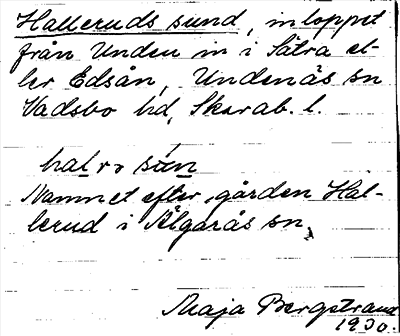 Halleruds sund, inloppet
från Unden in i Sätra el-
ler Edsån, Undenäs sn
Vadsbo hd, Skarab. l.
halrº sún
Namnet efter gården Hal-
lerud i Älgarås sn.
Maja Bergstrand
1930.